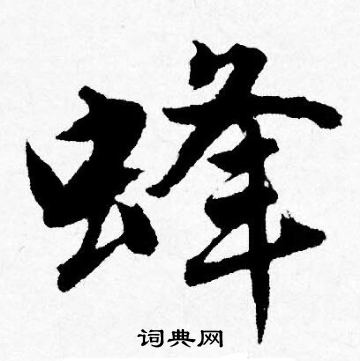 蜂
词典网